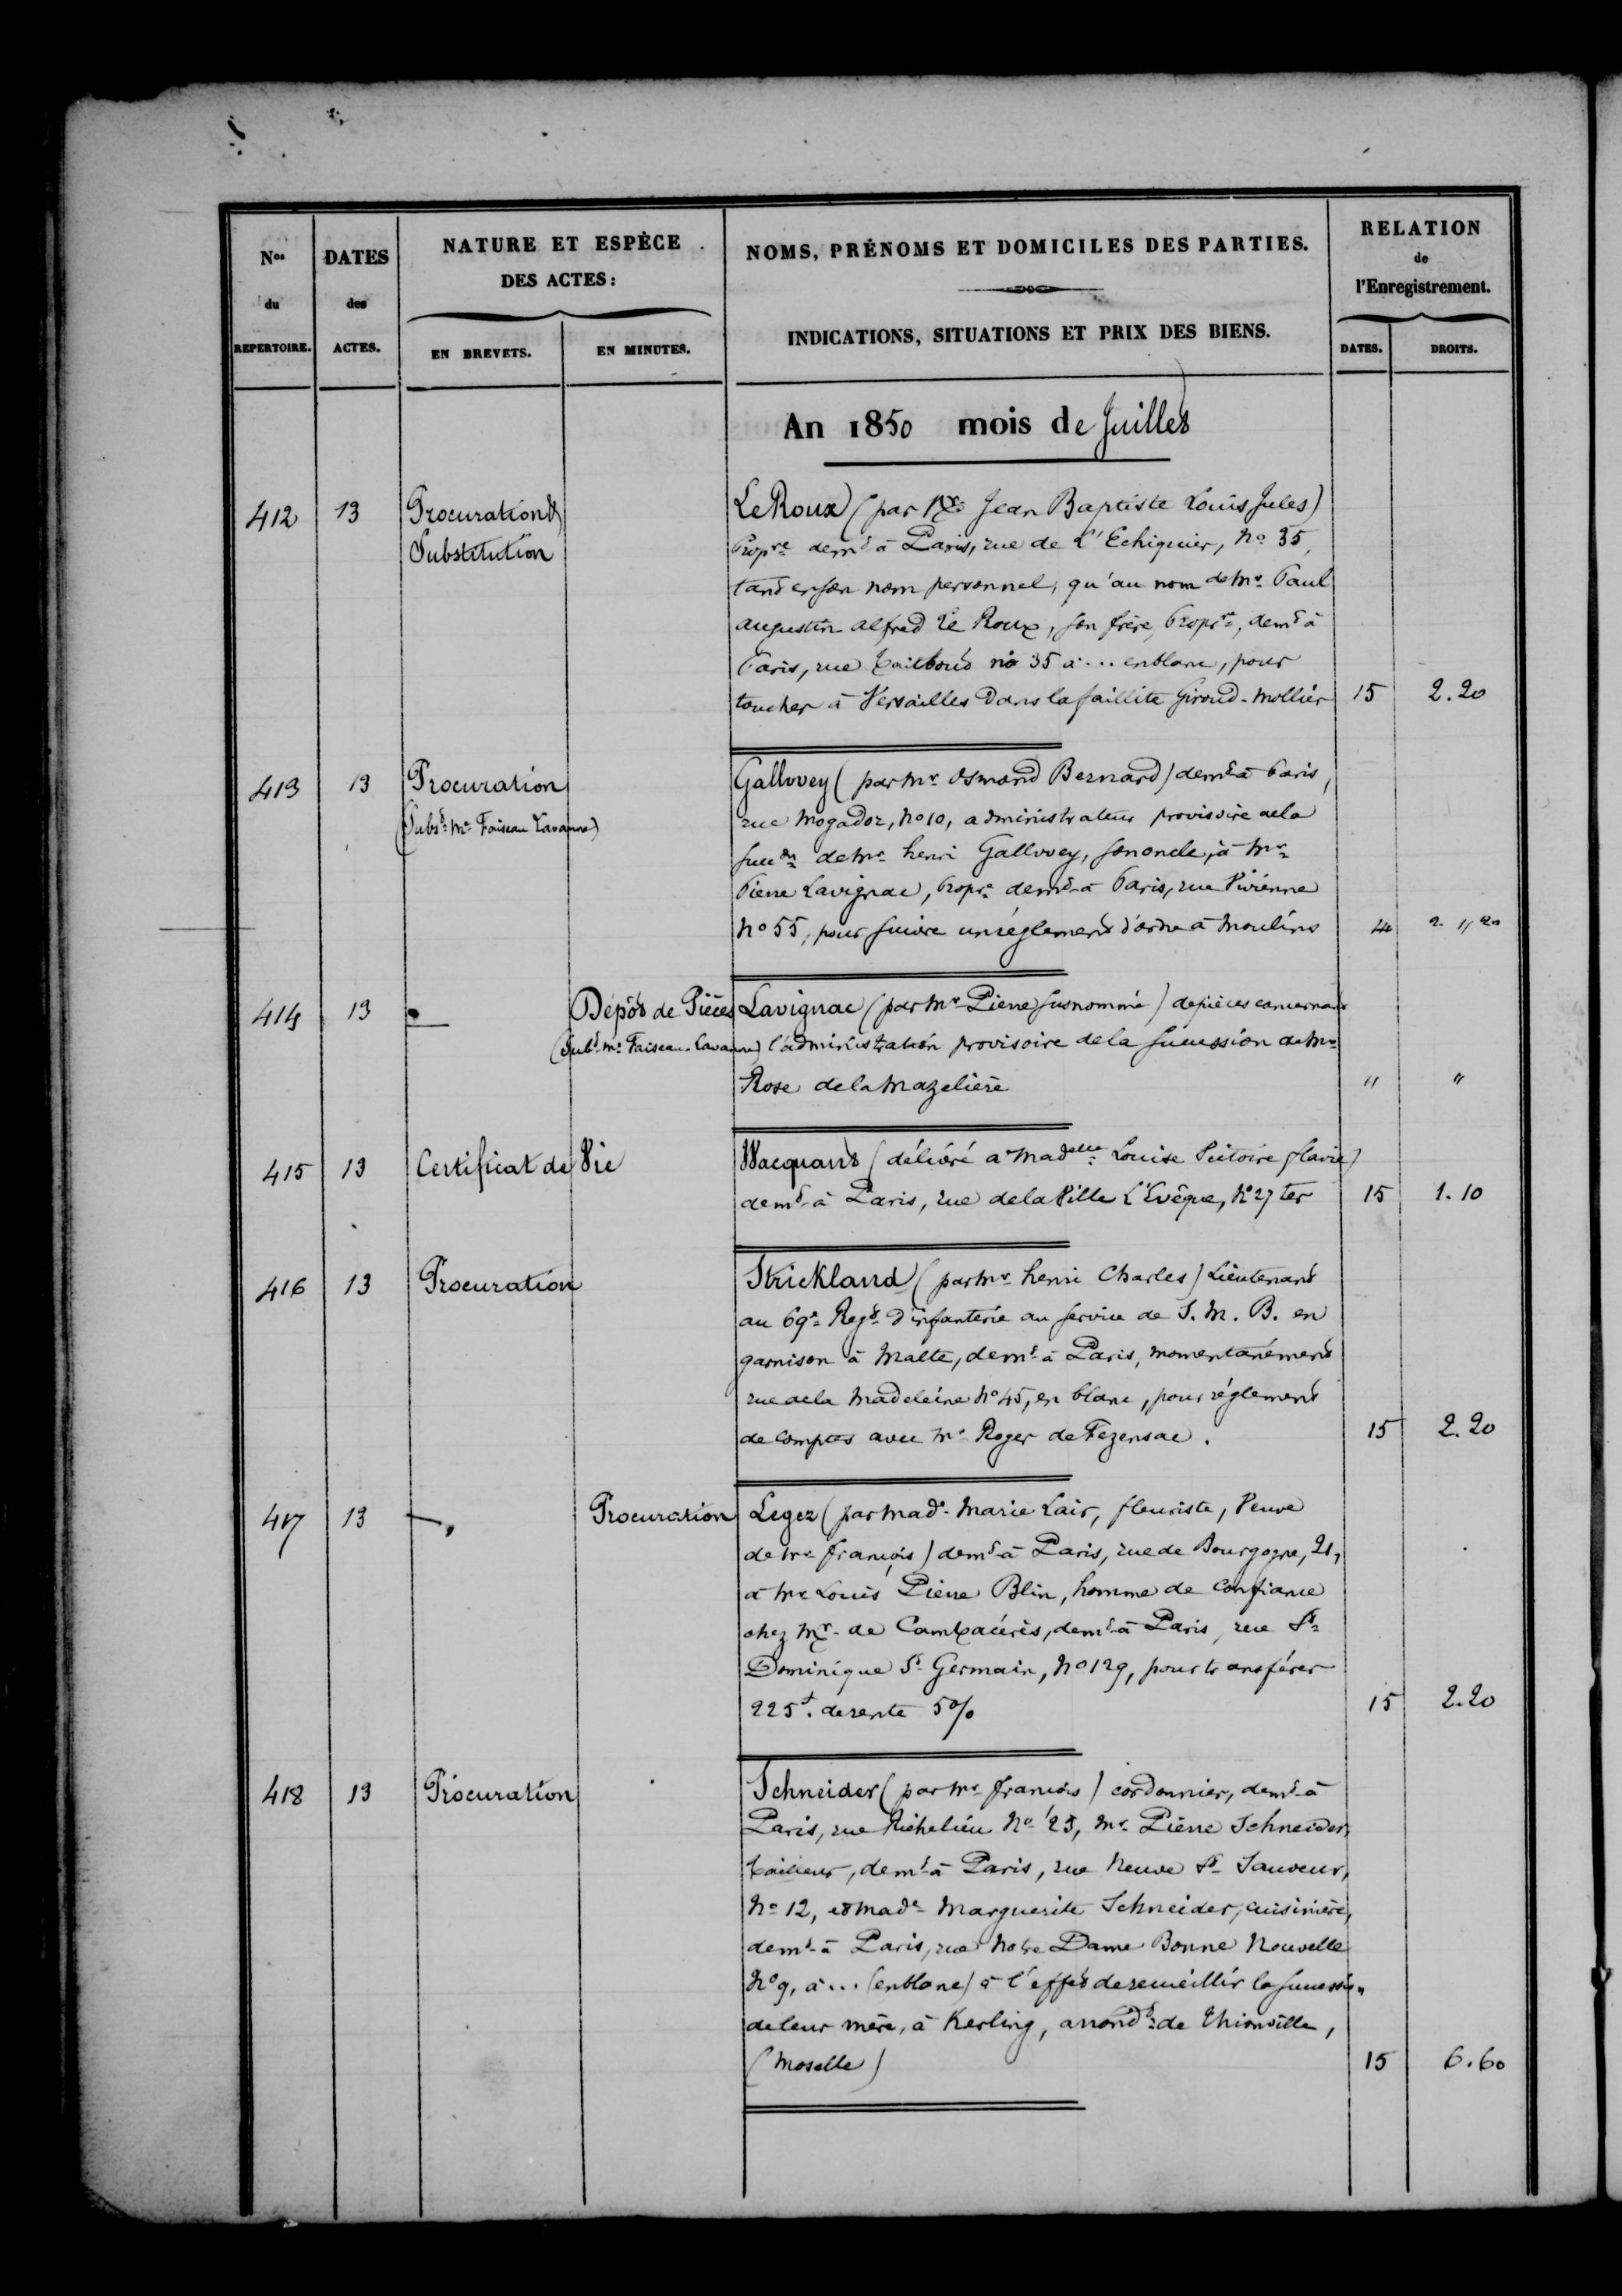 Nos du REPERTOIRE.
DATES des ACTES.
NATURE ET ESPÈCE DES ACTES:
EN BREVETS.
EN MINUTES.
NOMS, PRÉNOMS ET DOMICILES DES PARTIES.
INDICATIONS, SITUATIONS ET PRIX DES BIENS.
RELATION de l'Enregistrement.
DATES.
DROITS.
An 1850 mois de Juillet
412 13 Procuration &
Substitution
Le Roux (par Mr Jean Baptiste Louis Jules)
Propre demt à Paris, rue de L'Echiquier, No 35,
tant en son nom personnel, qu'au nom de Mr Paul
Augustin Alfred Le Roux, son frère, Propre, demt à
Paris, rue Taitbout no 35 à ... en blanc, pour
toucher à Versailles dans la faillite Giroud-Mollier 15 2.20
413 13 Procuration
(Subst Me Faiseau Lavanne)
Gallwey (par Mr Osmond Bernard) demt à Paris,
rue Mogador, No 10, administrateur provisoire de la
succon de Mr henri Gallwey, son oncle, à Mr
Pierre Lavignac, Propre demt à Paris, rue Vivienne
No 55, pour suivre un réglement d'ordre à Moulins 2 " 20
414 13 — Dépôt de Pièces
(Subt Me Faiseau-Lavanne)
Lavignac (par Mr Pierre susnommé) de pièces concernant
l'administration provisoire de la succession de Mr
Rose de la Mazelière " "
415 13 Certificat de Vie
Wacquant (délivré à Madelle Louise Victoire flavie)
demt à Paris, rue de la Ville L'Evêque, No 27 ter 15 1.10
416 13 Procuration
Strickland (par Mr henri Charles) Lieutenant
au 69e Regt d'infanterie au service de S. M. B. en
garnison à Malte, demt à Paris, momentanément
rue de la Madeleine No 45, en blanc, pour réglement
de comptes avec Mr Roger de Fezensac. 15 2.20
417 13 — Procuration
Legez (par Made Marie Lair, fleuriste, Veuve
de Mr françois) demt à Paris, rue de Bourgogne, 21,
à Mr Louis Pierre Blin, homme de confiance
chez Mr de Cambacérès, demt à Paris, rue St
Dominique St Germain, No 129, pour transférer
225f. de rente 5% 15 2.20
418 13 Procuration
Schneider (par Mr françois) cordonnier, demt à
Paris, rue Richelieu No 23, Mr Pierre Schneider,
tailleur, demt à Paris, rue Neuve St Sauveur,
No 12, et Made Marguerite Schneider, cuisinière,
demt à Paris, rue Notre Dame Bonne Nouvelle
No 9, à ... (en blanc) à l'effet de recueillir la succession
de leur mère, à Kerling, arrondt de Thionville,
(Moselle) 15 6.60